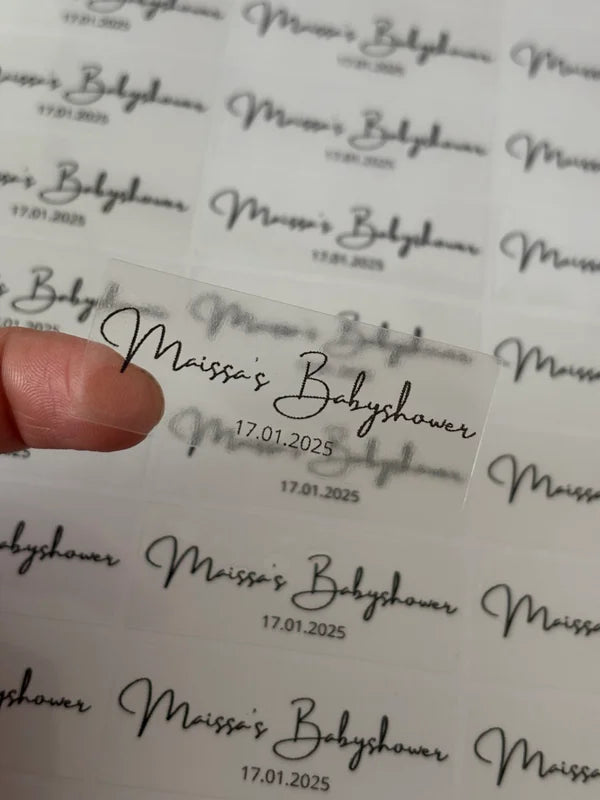 17.01.2025
Maissa's Babyshower
17.01.2025
Maissa's
Babyshower
17.01.2025
Maissa's Babyshower
17.01.2025
Maissa's
Babyshower
17.01.2025
Maissa's Babyshower
17.01.2025
Maissa's
Maissa's Babyshower
Maissa's
Maissa's Babyshower
17.01.2025
Maissa's Babyshower
17.01.2025
Maissa's
Babyshower
Maissa's Babyshower
17.01.2025
Maissa's
Maissa's Babyshower
17.01.2025
Maissa's